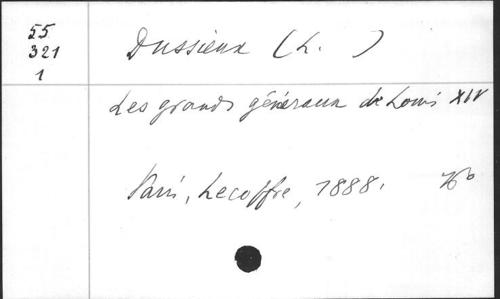 55
321
1
Dussieux (L. )
Les grands généraux de Louis XIV
Paris, Lecoffre, 1888.